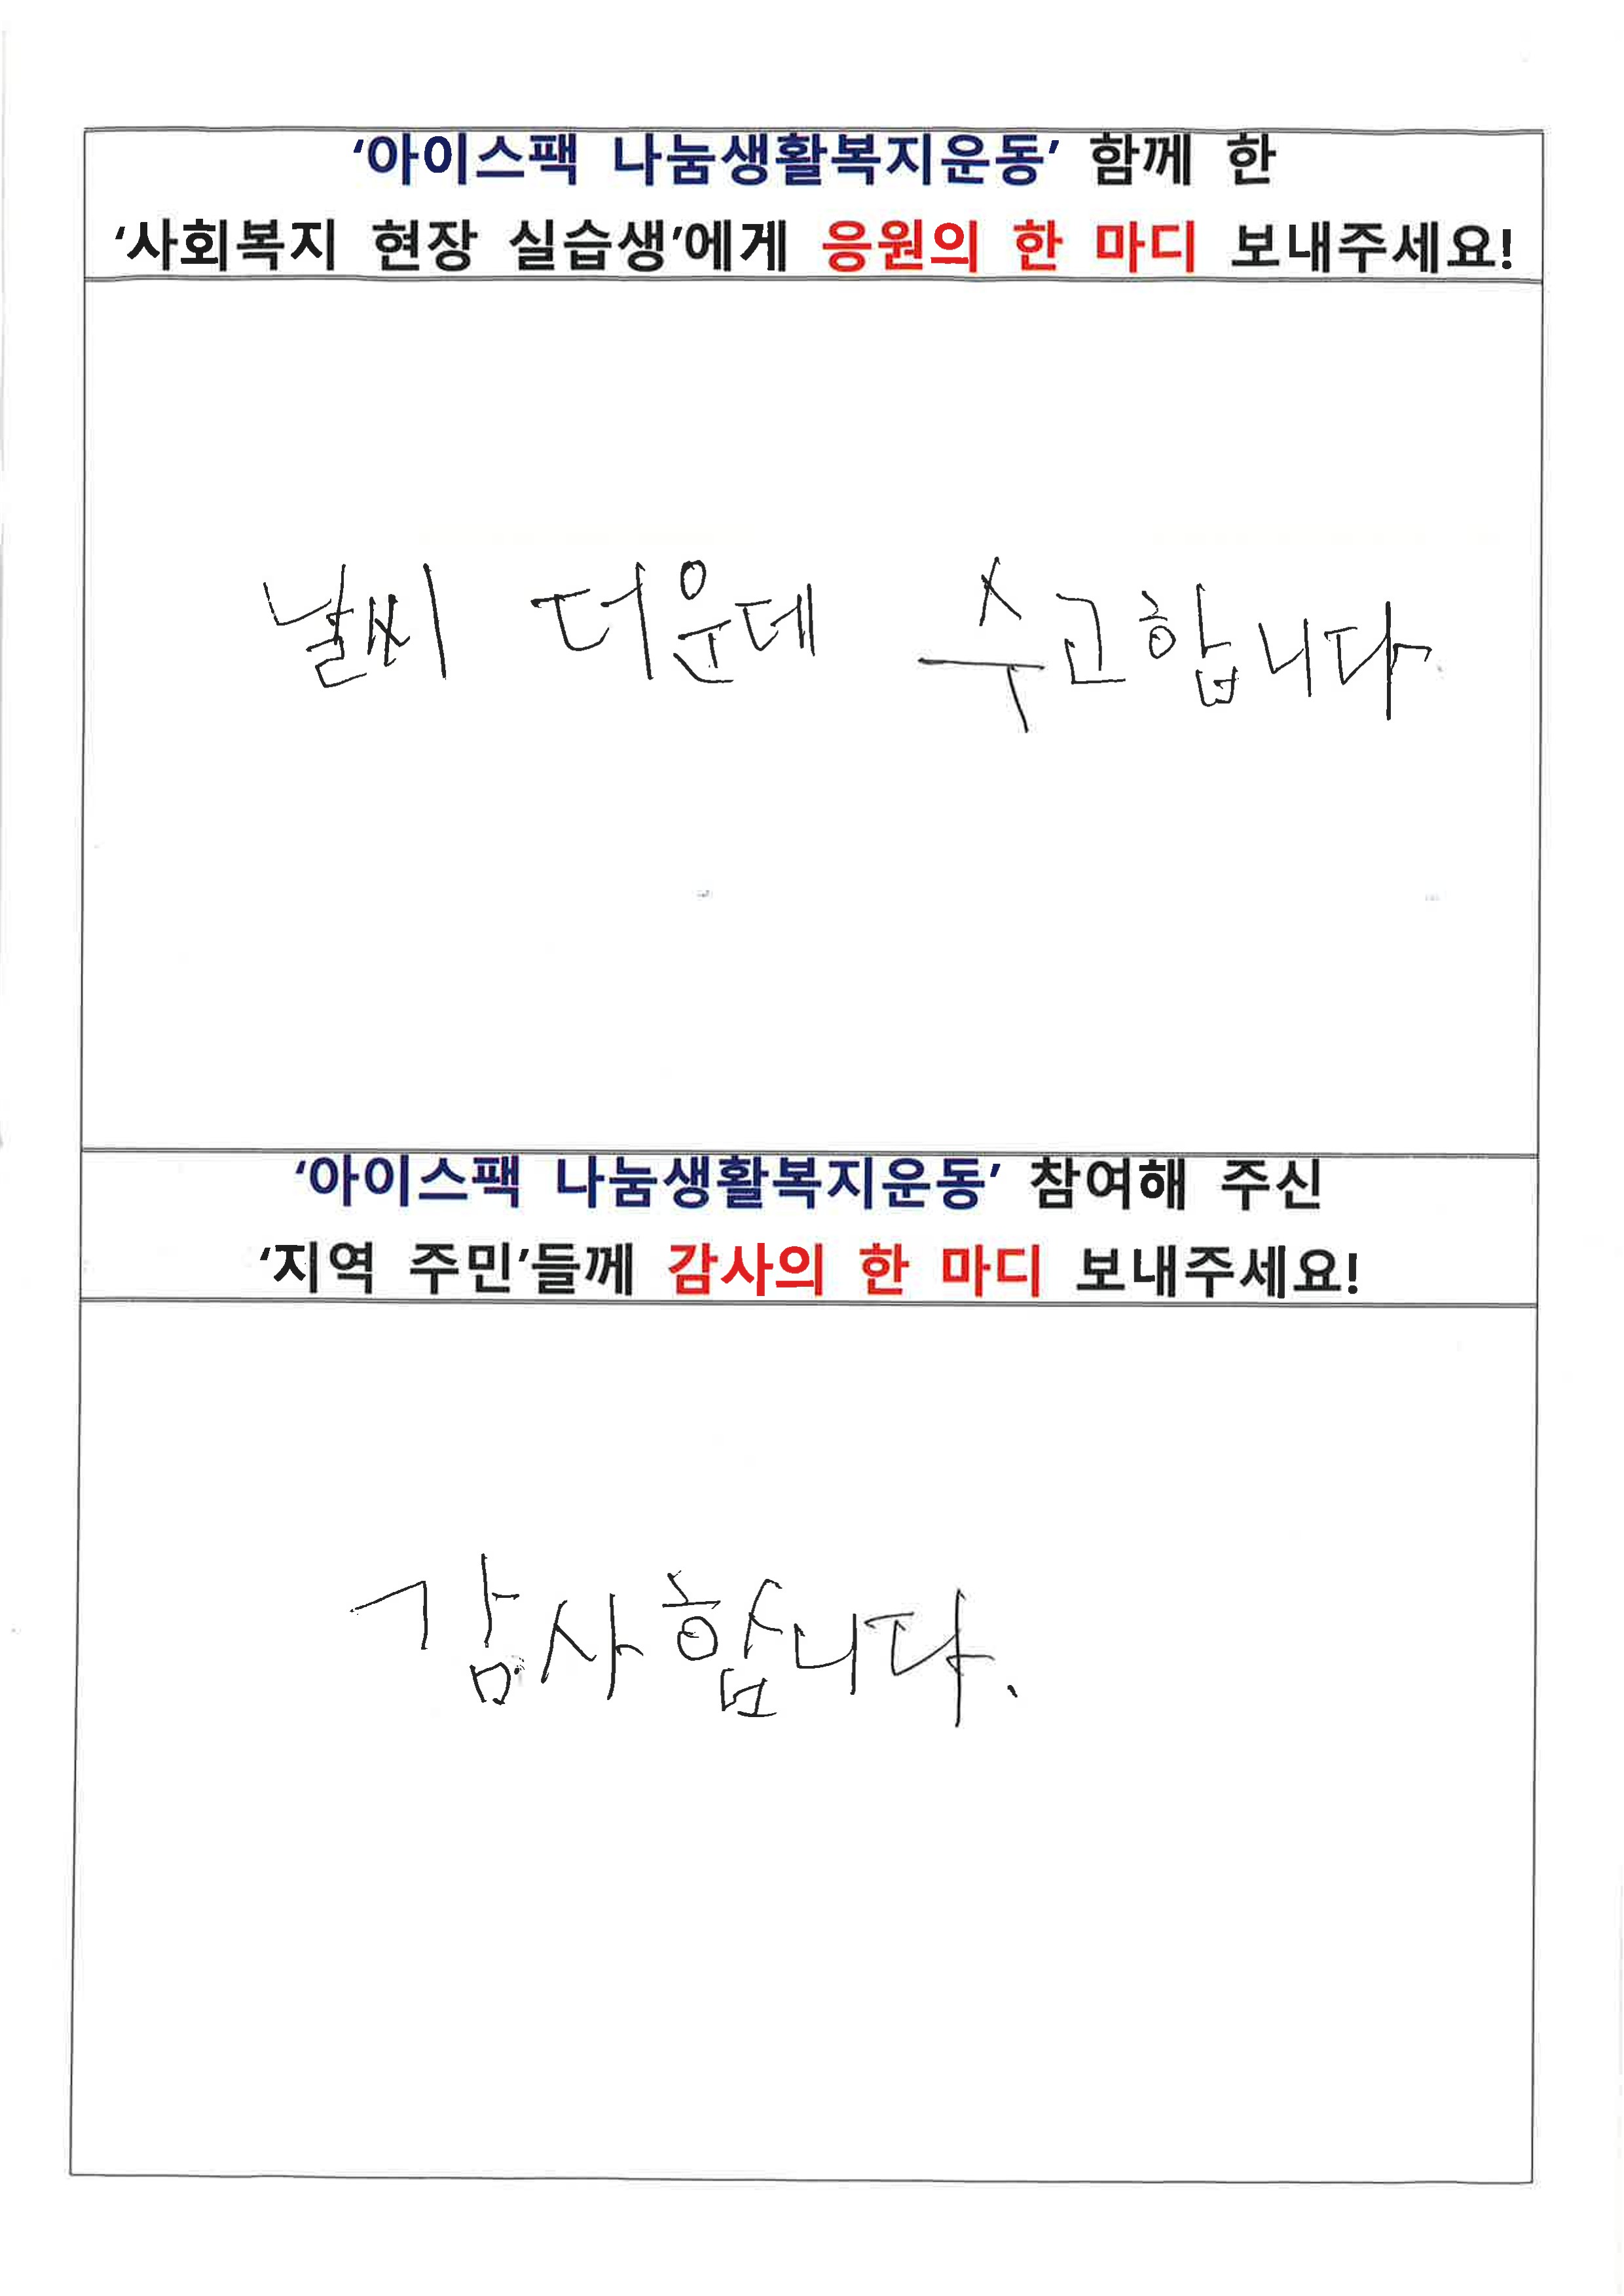 ‘아이스팩 나눔생활복지운동’ 함께 한
‘사회복지 현장 실습생’에게 응원의 한 마디 보내주세요!
날씨 더운데 수고합니다
‘아이스팩 나눔생활복지운동’ 참여해 주신
‘지역 주민’들께 감사의 한 마디 보내주세요!
감사합니다.